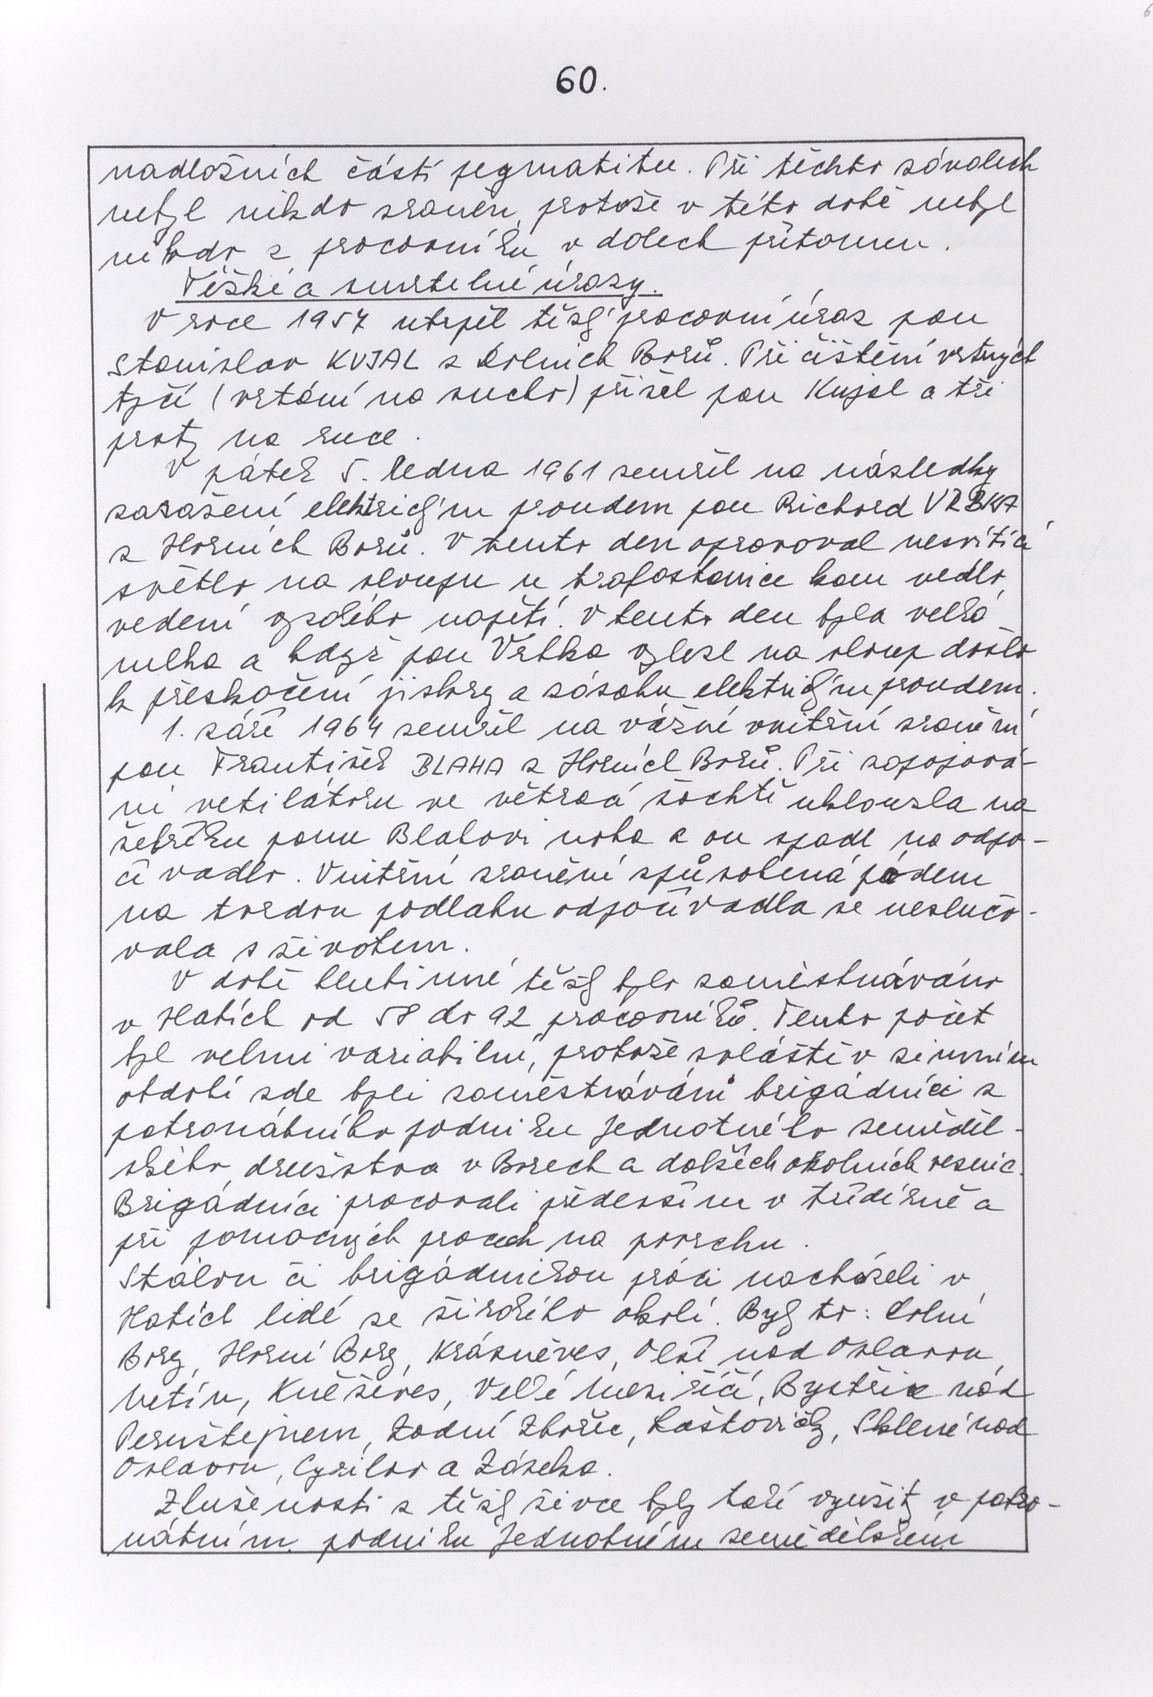 60.
nadložních částí pegmatitu. Při těchto závalech
nebyl nikdo zraněn, protože v této době nebyl
nikdo z pracovníků v dolech přítomen.
Těžké a smrtelné úrazy.
V roce 1957 utrpěl těžký pracovní úraz pan
Stanislav KUJAL z Dolních Borů. Při čištění vrtných
tyčí (vrtání na sucho) přišel pan Kujal o tři
prsty na ruce.
V pátek 5. ledna 1961 zemřel na následky
zasažení elektrickým proudem pan Richard VRBKA
z Horních Borů. V tento den opravoval nesvítící
světlo na sloupu u trafostanice kam vedlo
vedení vysokého napětí. V tento den byla velká
mlha a když pan Vrbka vylezl na sloup došlo
k přeskočení jiskry a zásahu elektrickým proudem.
1. září 1964 zemřel na vážné vnitřní zranění
pan František BLAHA z Horních Borů. Při zapojová-
ní vetilátoru ve větrací šachtě uklouzla na
žebříku panu Blahovi noha a on spadl na odpo-
čívadlo. Vnitřní zranění způsobená pádem
na tvrdou podlahu odpočívadla se neslučo-
vala s životem.
V době hlubinné těžby bylo zaměstnáváno
v Hatích od 58 do 92 pracovníků. Tento počet
byl velmi variabilní, protože zvláště v zimním
období zde byli zaměstnáváni brigádníci z
patronátního podniku Jednotného zeměděl-
ského družstva v Borech a dalších okolních vesnic.
Brigádníci pracovali především v třídírně a
při pomocných pracech na povrchu.
Stálou či brigádnickou práci nacházeli v
Hatích lidé ze širokého okolí. Byly to: Dolní
Bory, Horní Bory, Krásněves, Olší nad Oslavou,
Netín, Kněževes, Velké Meziříčí, Bystřice nad
Pernštejnem, Zadní Zhořec, Laštovičky, Sklené nad
Oslavou, Cyrilov a Záseka.
Zkušenosti z těžby živce byly také využity v patro-
nátním podniku Jednotném zemědělském